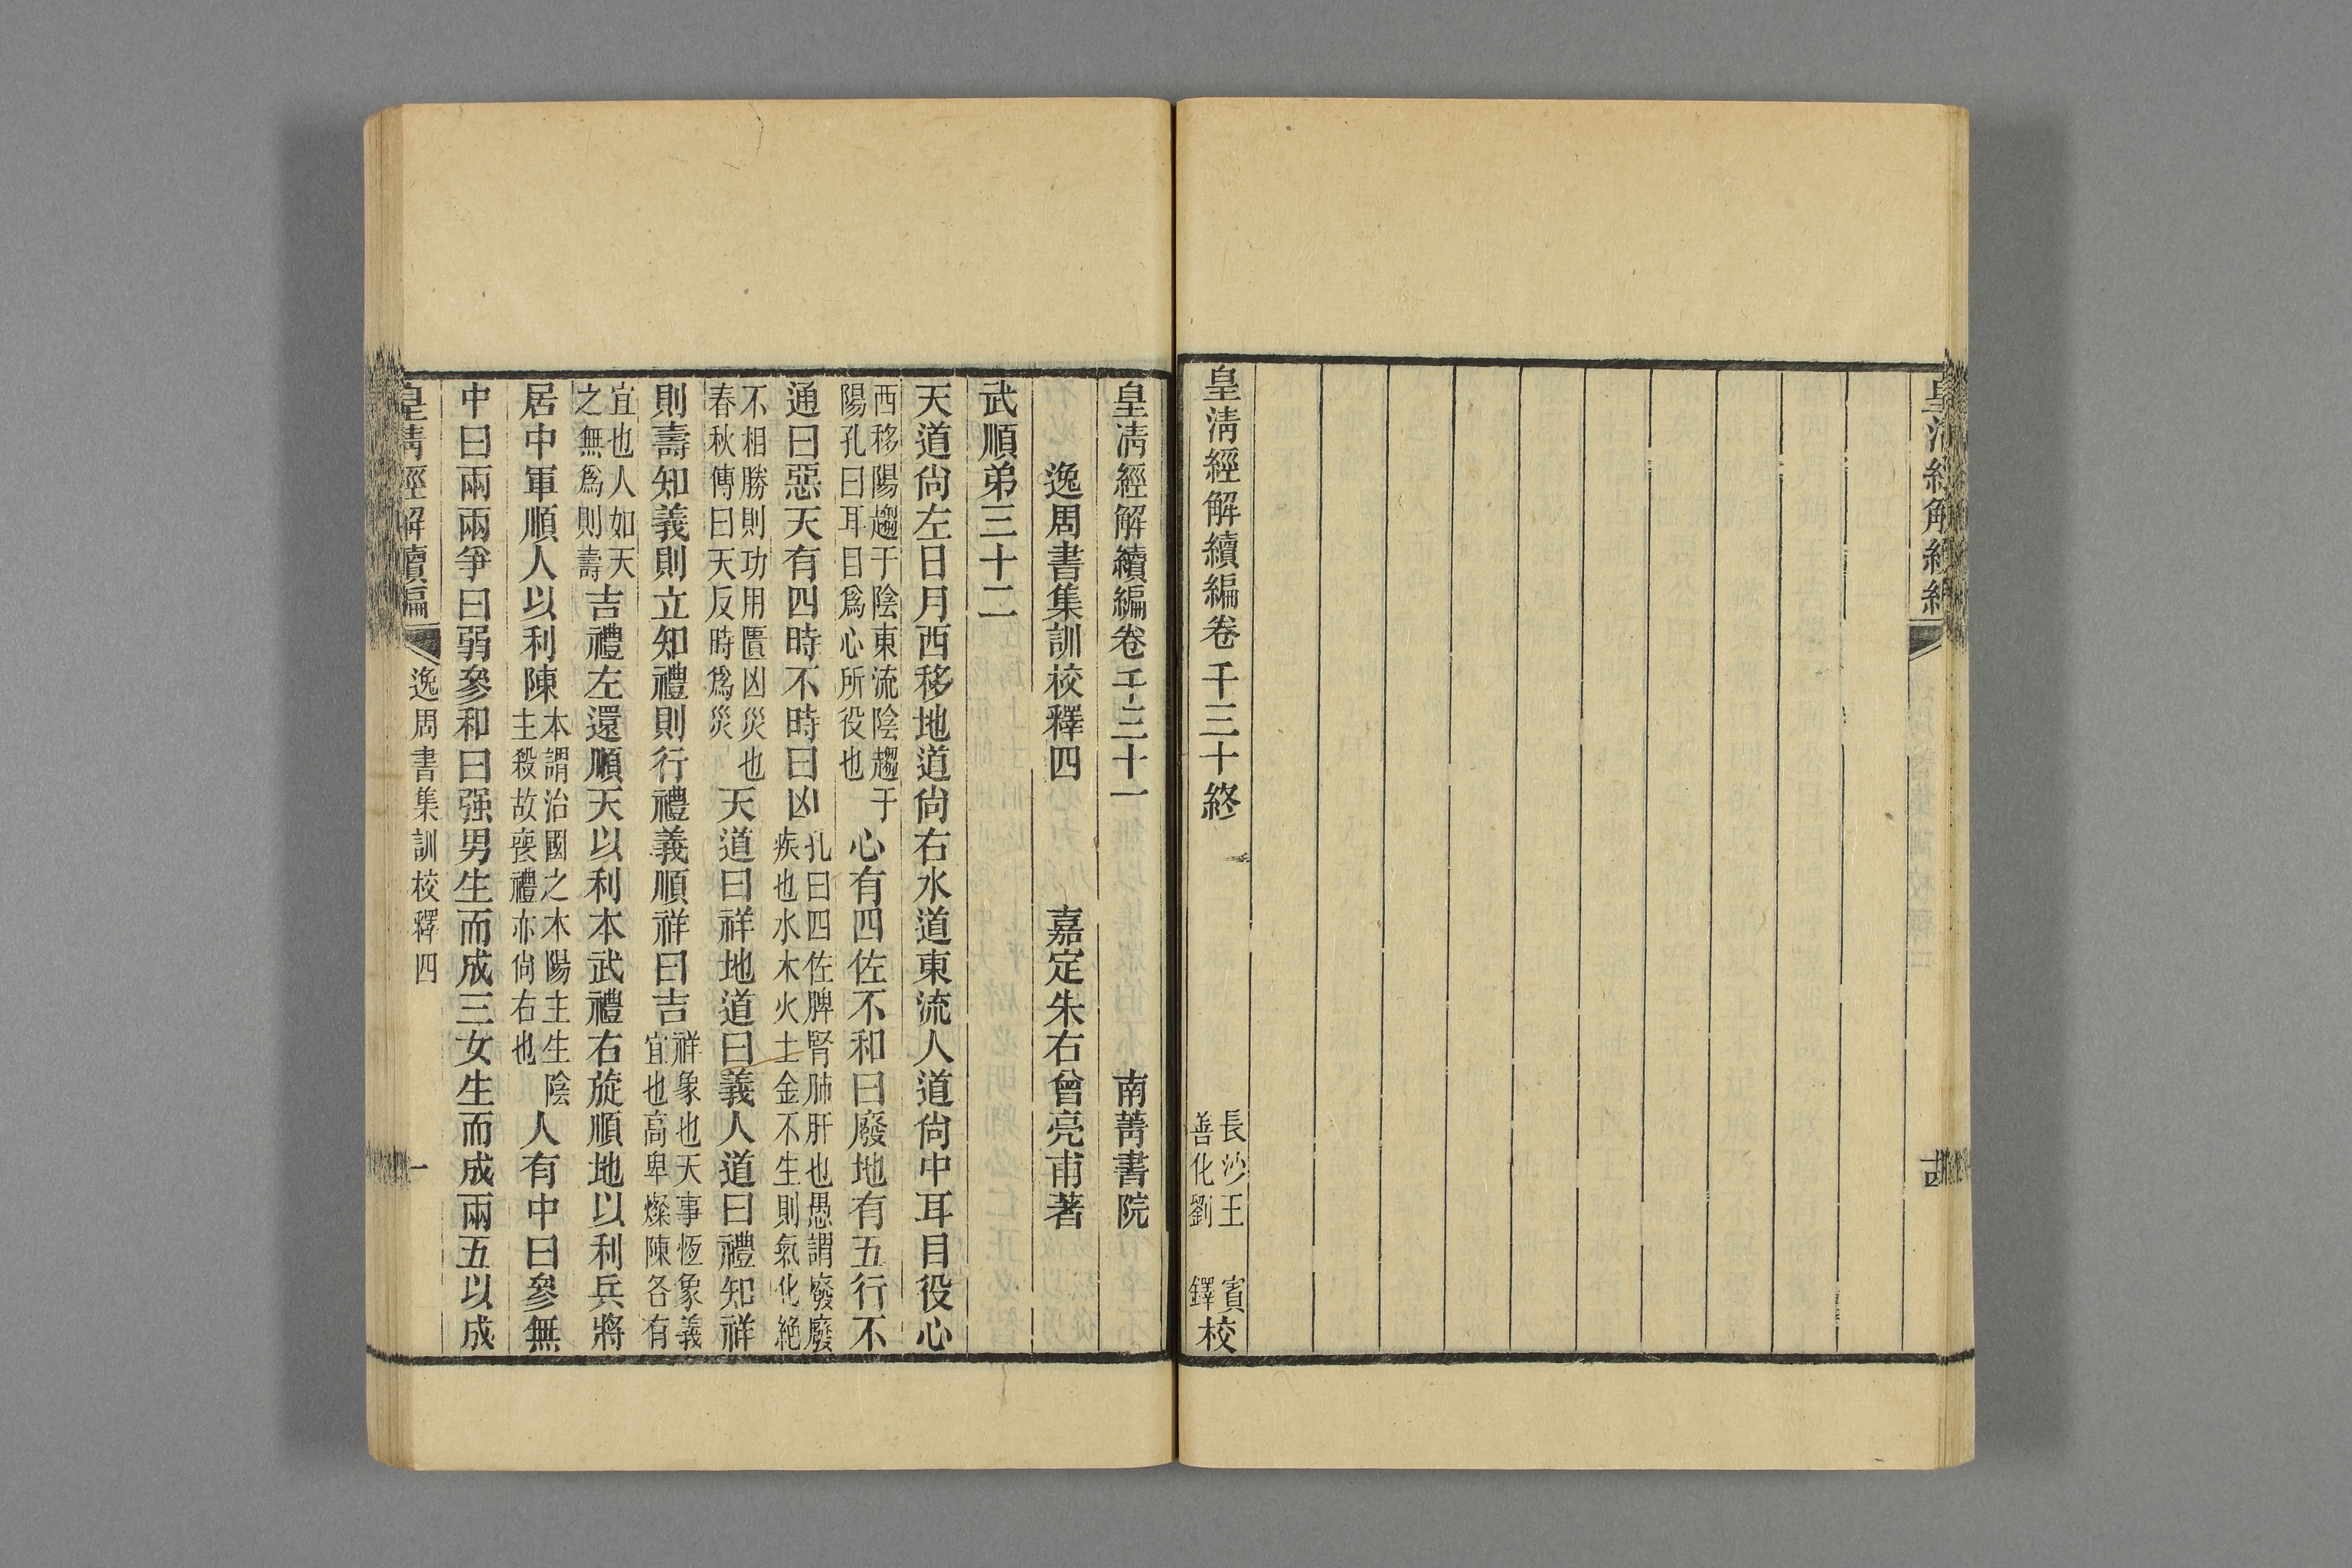 皇清經解續編卷千三十終
長沙王 賓
善化劉 鐸
校
皇清經解續編卷千三十一 南菁書院
逸周書集訓校釋四 嘉定朱右曾亮甫著
武順弟三十二
天道尙左日月西移地道尙右水道東流人道尙中耳目役心
西移陽趨于陰東流陰趨于
陽孔曰耳目爲心所役也
心有四佐不和曰廢地有五行不
通曰惡天有四時不時曰凶
孔曰四佐脾腎肺肝也愚謂廢廢
疾也水木火土金不生則氣化絶
不相勝則功用匱凶災也
春秋傳曰天反時爲災
天道曰祥地道曰義人道曰禮知祥
則壽知義則立知禮則行禮義順祥曰吉
祥象也天事恆象義
宜也高卑燦陳各有
宜也人如天
之無爲則壽
吉禮左還順天以利本武禮右旋順地以利兵將
居中軍順人以利陳
本謂治國之木陽主生陰
主殺故喪禮亦尙右也
人有中曰參無
中曰兩兩爭曰弱參和曰强男生而成三女生而成兩五以成
皇清經解續編
逸周書集訓校釋四
一